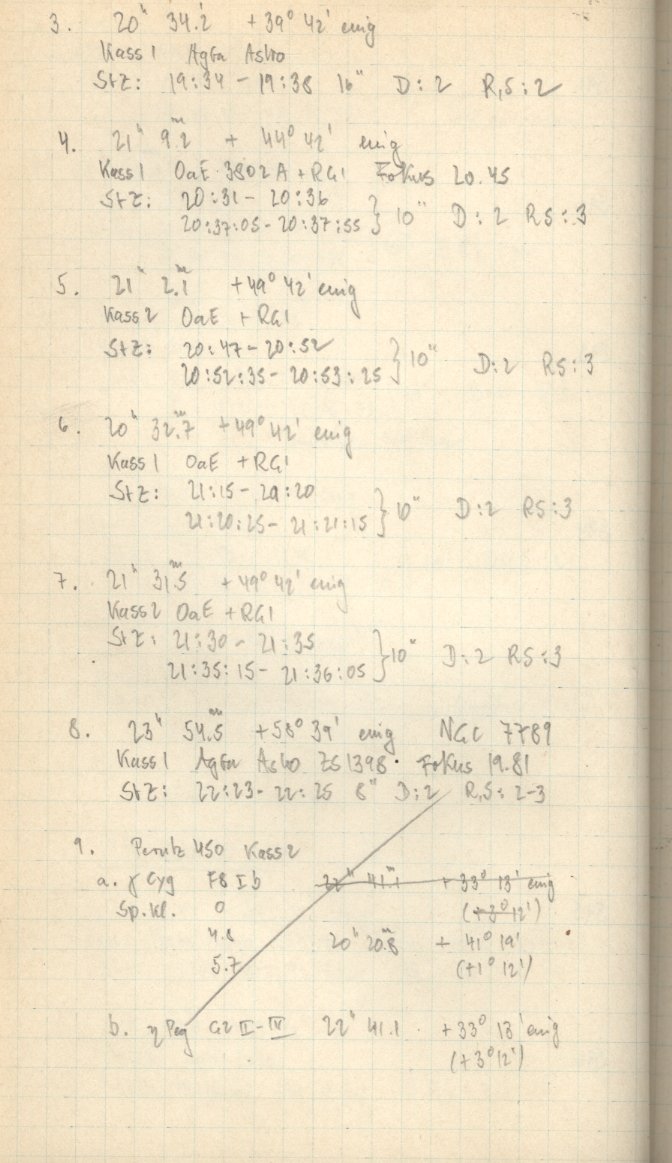 3. 20ʰ 34ᵐ.2 +39° 42' enig
Kass 1 Agfa Astro
StZ: 19:34 - 19:38 16" D: 2 R,S: 2
4. 21ʰ 9ᵐ.2 + 44° 42' enig
Kass 1 OaE 3802 A + RG1 Fokus 20.45
StZ: 20:31 - 20:36
20:37:05 - 20:37:55 } 10" D: 2 RS: 3
5. 21ʰ 2ᵐ.1 +49° 42' enig
Kass 2 OaE + RG1
StZ: 20:47 - 20:52
20:52:35 - 20:53:25 } 10" D: 2 RS: 3
6. 20ʰ 32ᵐ.7 +49° 42' enig
Kass 1 OaE + RG1
StZ: 21:15 - 21:20
21:20:25 - 21:21:15 } 10" D: 2 RS: 3
7. 21ʰ 31ᵐ.5 +49° 42' enig
Kass 2 OaE + RG1
StZ: 21:30 - 21:35
21:35:15 - 21:36:05 } 10" D: 2 RS: 3
8. 23ʰ 54ᵐ.5 +58° 39' enig NGC 7789
Kass 1 Agfa Astro ZS 1398 Fokus 19.81
StZ: 22:23 - 22:25 8" D: 2 R,S: 2-3
9. Perutz 450 Kass 2
a. γ Cyg F8 Ib 22ʰ 41ᵐ.1 + 33° 13' enig
Sp.kl. 0 (+3° 12')
4.8 20ʰ 20ᵐ.8 + 41° 19'
5.7 (+1° 12')
b. η Peg G2 II-IV 22ʰ 41.1 +33° 13' enig
(+3° 12')